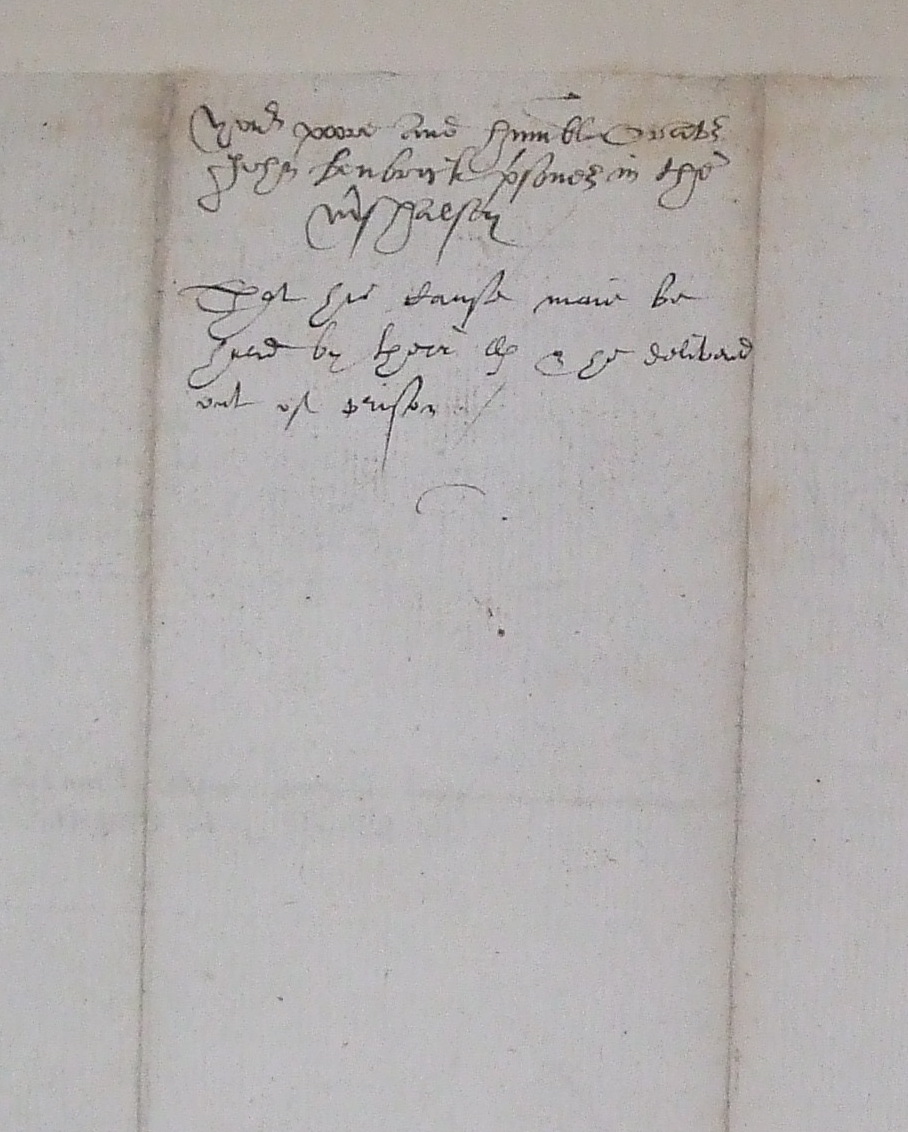 Yor poore and humble Orator
John Benbrick psoner in the
mrshalsey
That his cause maie be
herd by their llps & he deliverd
out of prison